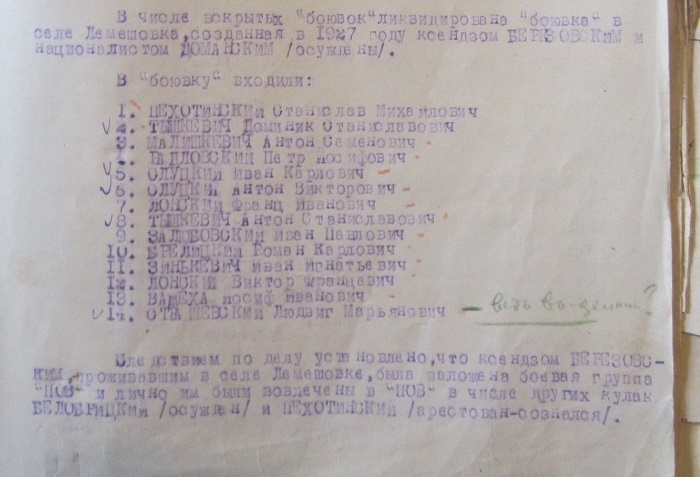 В числе вскрытых "боювок" ликвидирована "боювка" в
селе Лемешовка, созданная в 1927 году ксендзом БЕРЕЗОВСКИМ и
националистом ДОМАНСКИМ /осуждены/.
В "боювку" входили:
I. ПЕХОТИНСКИЙ Станислав Михайлович
2. ТЫШКЕВИЧ Доминик Станиславович
3. МАЛИШКЕВИЧ Антон Семенович
4. Петр Иосифович
5. СЛУЦКИЙ Иван Карлович
6. СЛУЦКИЙ Антон Викторович
7. ЛОНСКИЙ Франц Иванович
8. ТЫШКЕВИЧ Антон Станиславович
9. ЗАЛЮБОВСКИЙ Иван Павлович
10. БРЕЛИЦКИЙ Роман Карлович
II. ЗИНЬКЕВИЧ Иван Игнатьевич
12. ЛОНСКИЙ Виктор Францевич
13. ВАЩЕХА Иосиф Иванович
14. Людвиг Марьянович - ведь ?
Следствием по делу установлено, что ксендзом БЕРЕЗОВС-
КИМ, проживавшим в селе Лемешовке, была заложена боевая группа
"ПОВ" и лично им были вовлечены в "ПОВ" в числе других кулак
БЕЛОБРИЦКИЙ /осужден/ и ПЕХОТИНСКИЙ /арестован-сознался/.